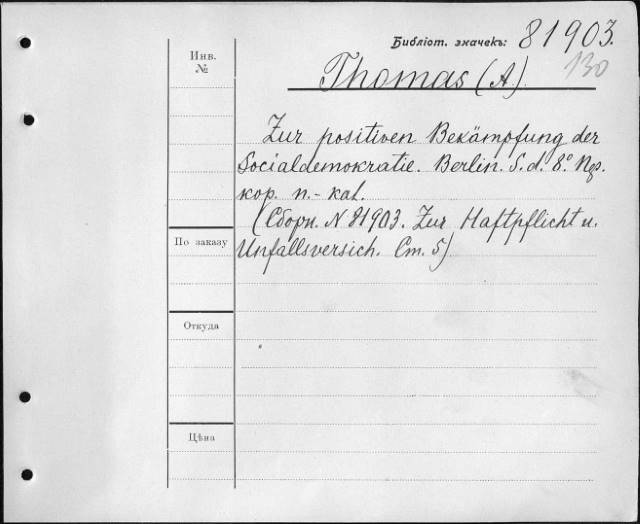 Библіот. значекъ: 81903.
130
Инв. №
Thomas (A).
Zur positiven Bekämpfung der
Socialdemokratie. Berlin. S. d. 8º
кор. п.-kal.
(Сборн. N 81903. Zur Haftpflicht u.
По заказу
Unfallsversich. Ст. 5)
Откуда
Цѣна